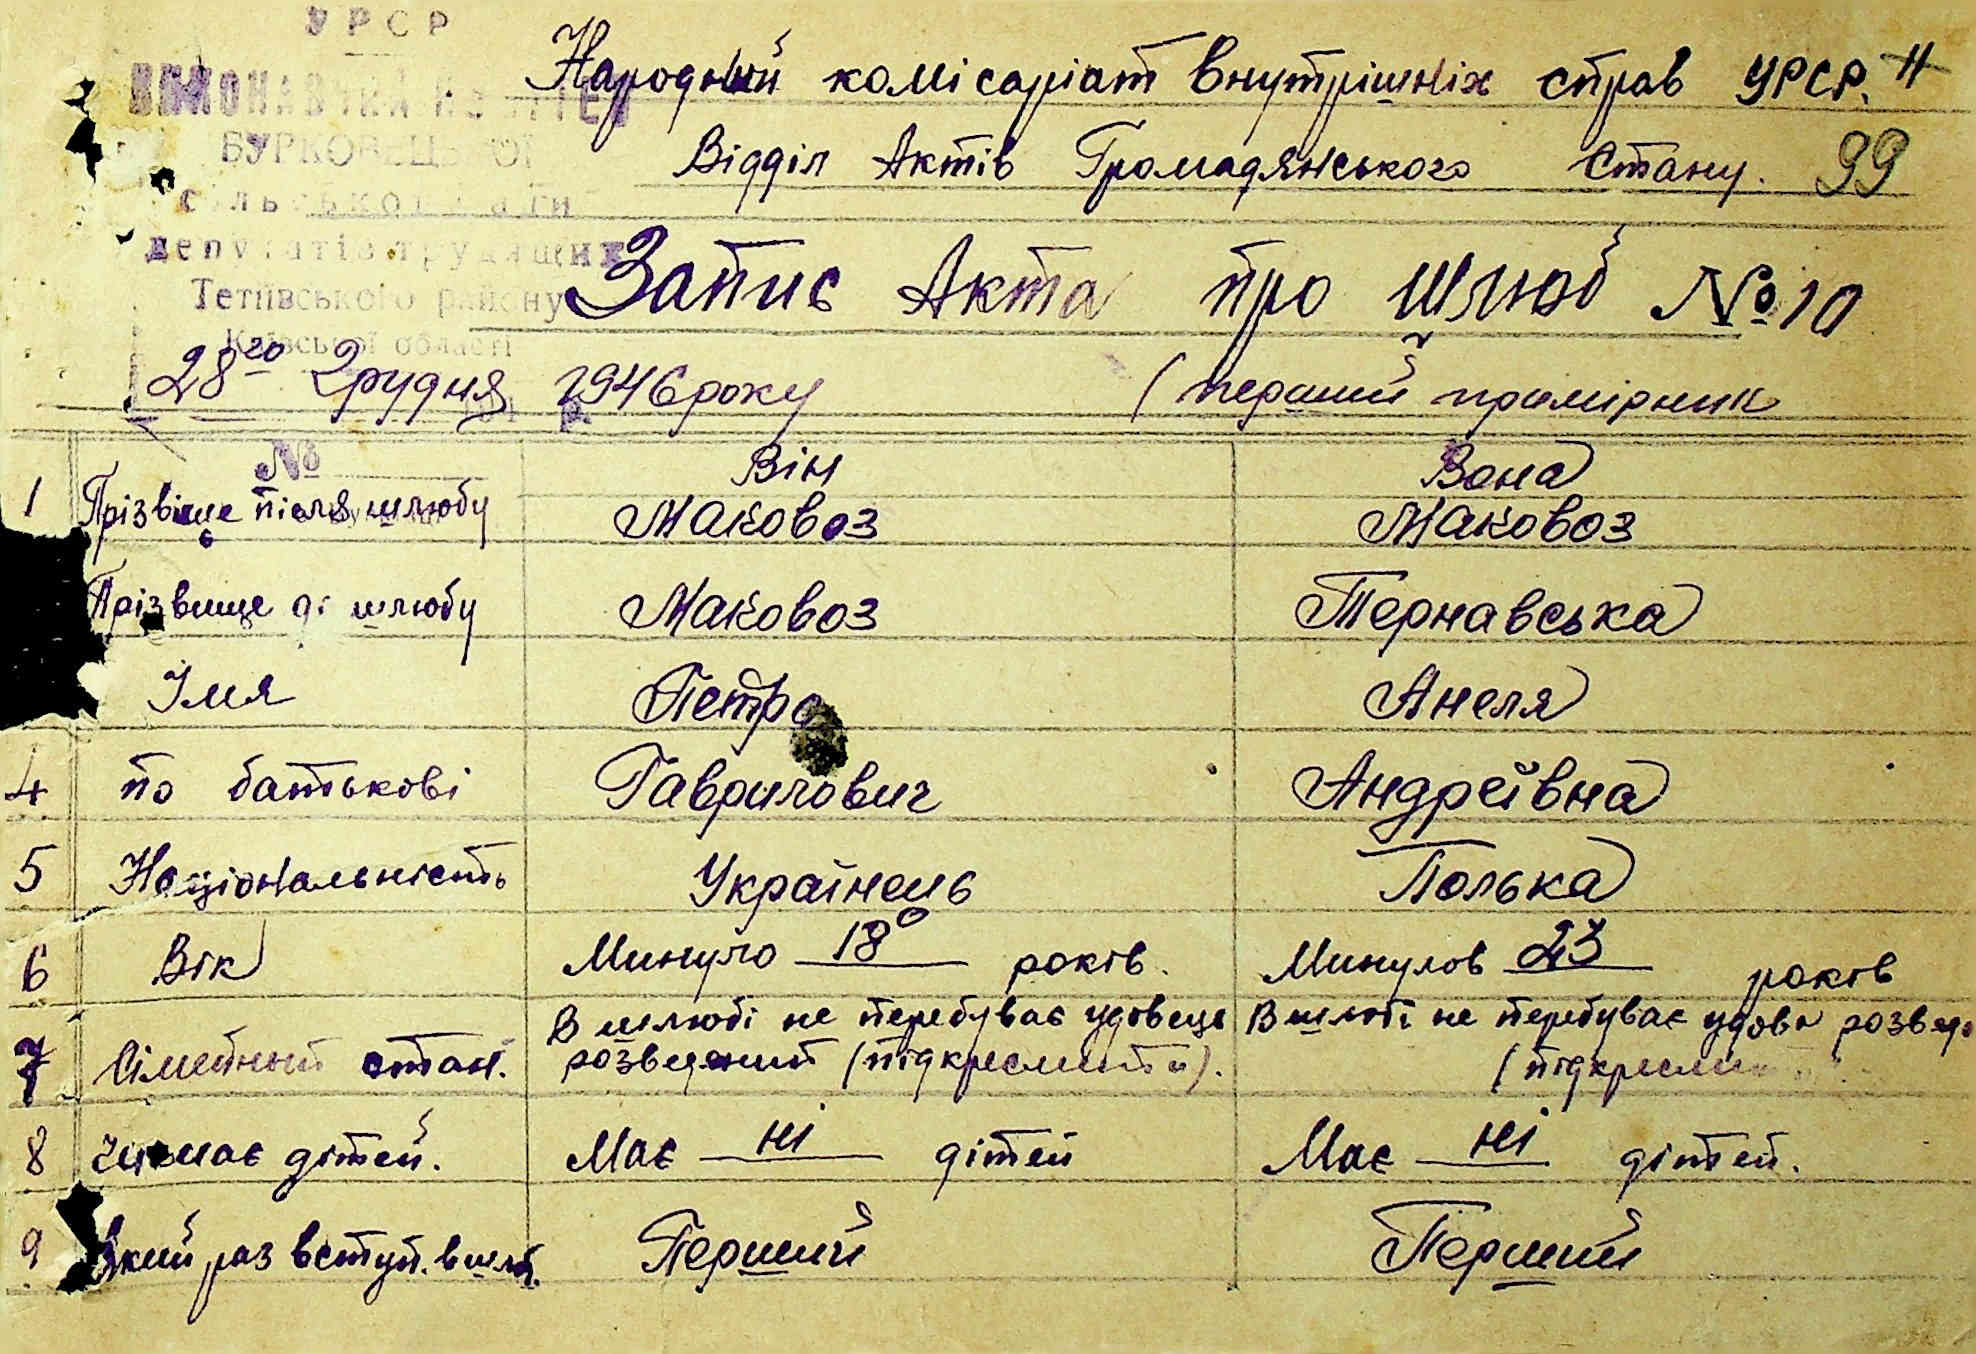 УРСР
Народний комісаріат внутрішніх справ УРСР. Н
ВИКОНАВЧИЙ КОМІТЕТ
БУРКОВЕЦЬКОЇ
Відділ Актів Громадянського Стану. 99
сільської ради
депутатів трудящих
Запис Акта про шлюб № 10
Тетіївського району
Київської області
28го Грудня 1946 року (перший примірник
№ Він Вона
1 Прізвище після шлюбу Маковоз Маковоз
Прізвище ді шлюбу Маковоз Тернавська
Імя Петро Анеля
4 по батькові Гаврилович Андреївна
5 Національність Українець Полька
6 Вік Минуло 18 років. Минулов 23 років
В шлюбі не перебуває удовець В шлюбі не перебуває удова розвед
7 Сімейний стан. розведений (підкреслити). (підкресли
8 Чи має дітей. Має ні дітей Має ні дітей.
9 Який раз вступ. в шлю. Перший Перший